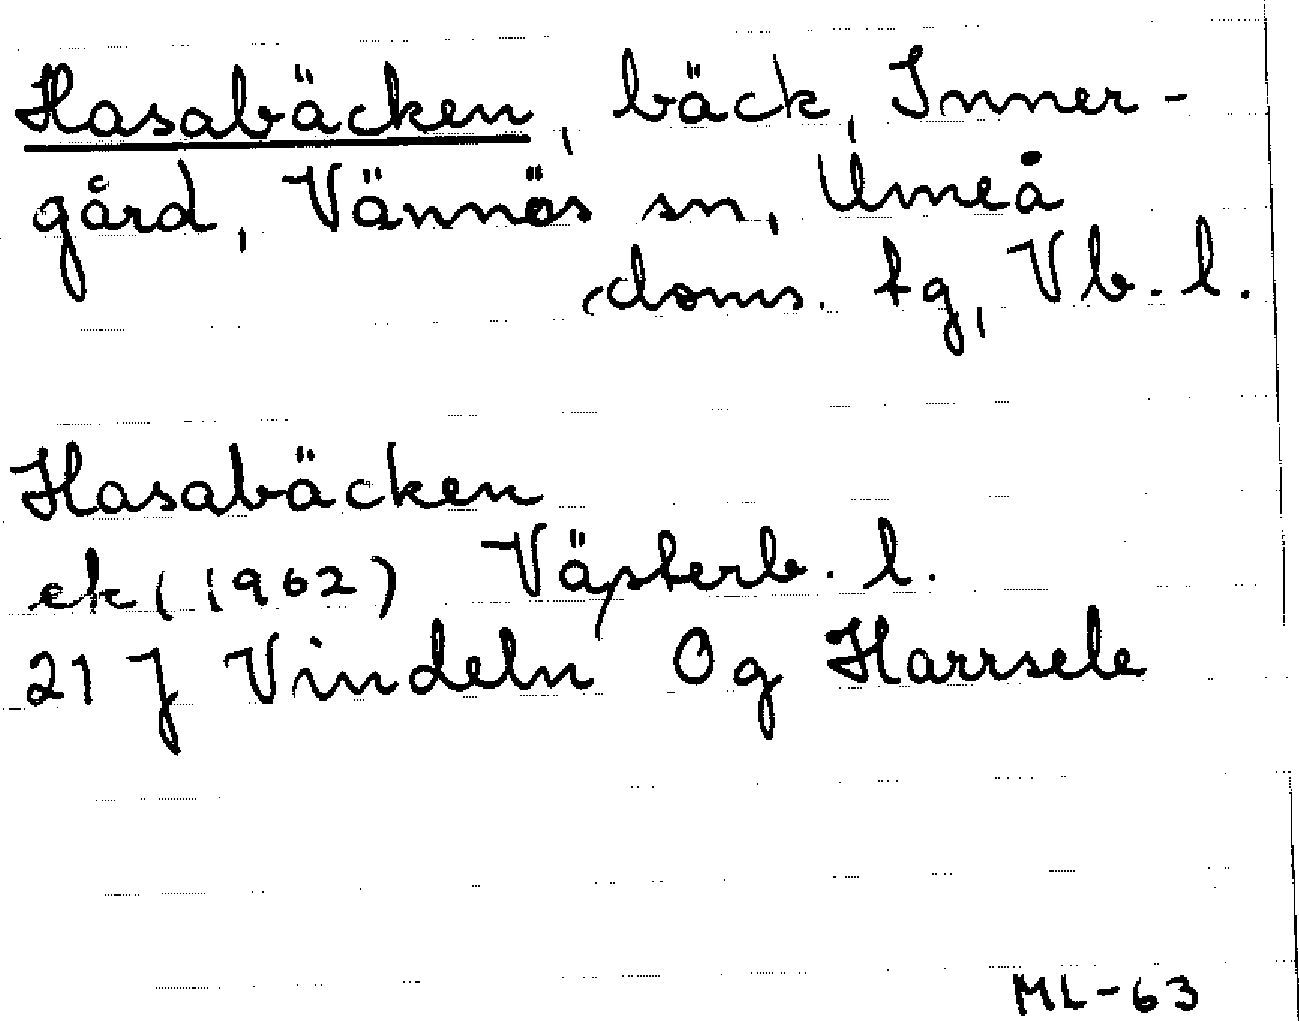 Hasabäcken, bäck, Inner-
gård, Vännäs sn, Umeå
doms. tg, Vb. l.
Hasabäcken
ek (1962) Västerb. l.
21 J Vindeln Og Harrsele
ML-63